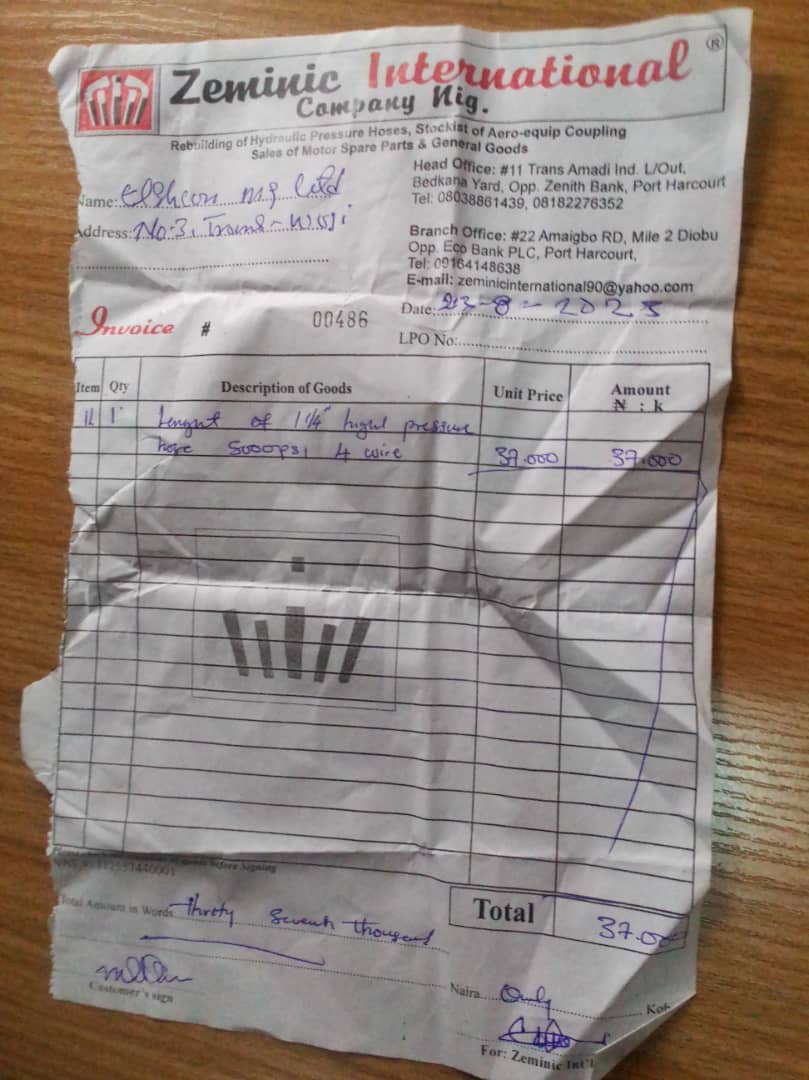 Zeminic International ®
Company Nig.
Rebuilding of Hydraulic Pressure Hoses, Stockist of Aero-equip Coupling
Sales of Motor Spare Parts & General Goods
Head Office: #11 Trans Amadi Ind. L/Out,
Bedkana Yard, Opp. Zenith Bank, Port Harcourt
Tel: 08038861439, 08182276352
Branch Office: #22 Amaigbo RD, Mile 2 Diobu
Opp. Eco Bank PLC, Port Harcourt,
Tel: 09164148638
E-mail: zeminicinternational90@yahoo.com
Name: Elshcon Ltd
Address: No. 3, Trans-Woji
Date: 23-8-2023
Invoice # 00486
LPO No:
Item Qty Description of Goods Unit Price Amount
₦ : k
1 Lenght of 1 1/4" high pressure
hose 5000psi 4 wire 37.000 37.000
before Signing
Total 37.000
Total Amount in Words: Thirty Seventh thousand
Customer's sign
Naira Only Kob
For: Zeminic Int'l